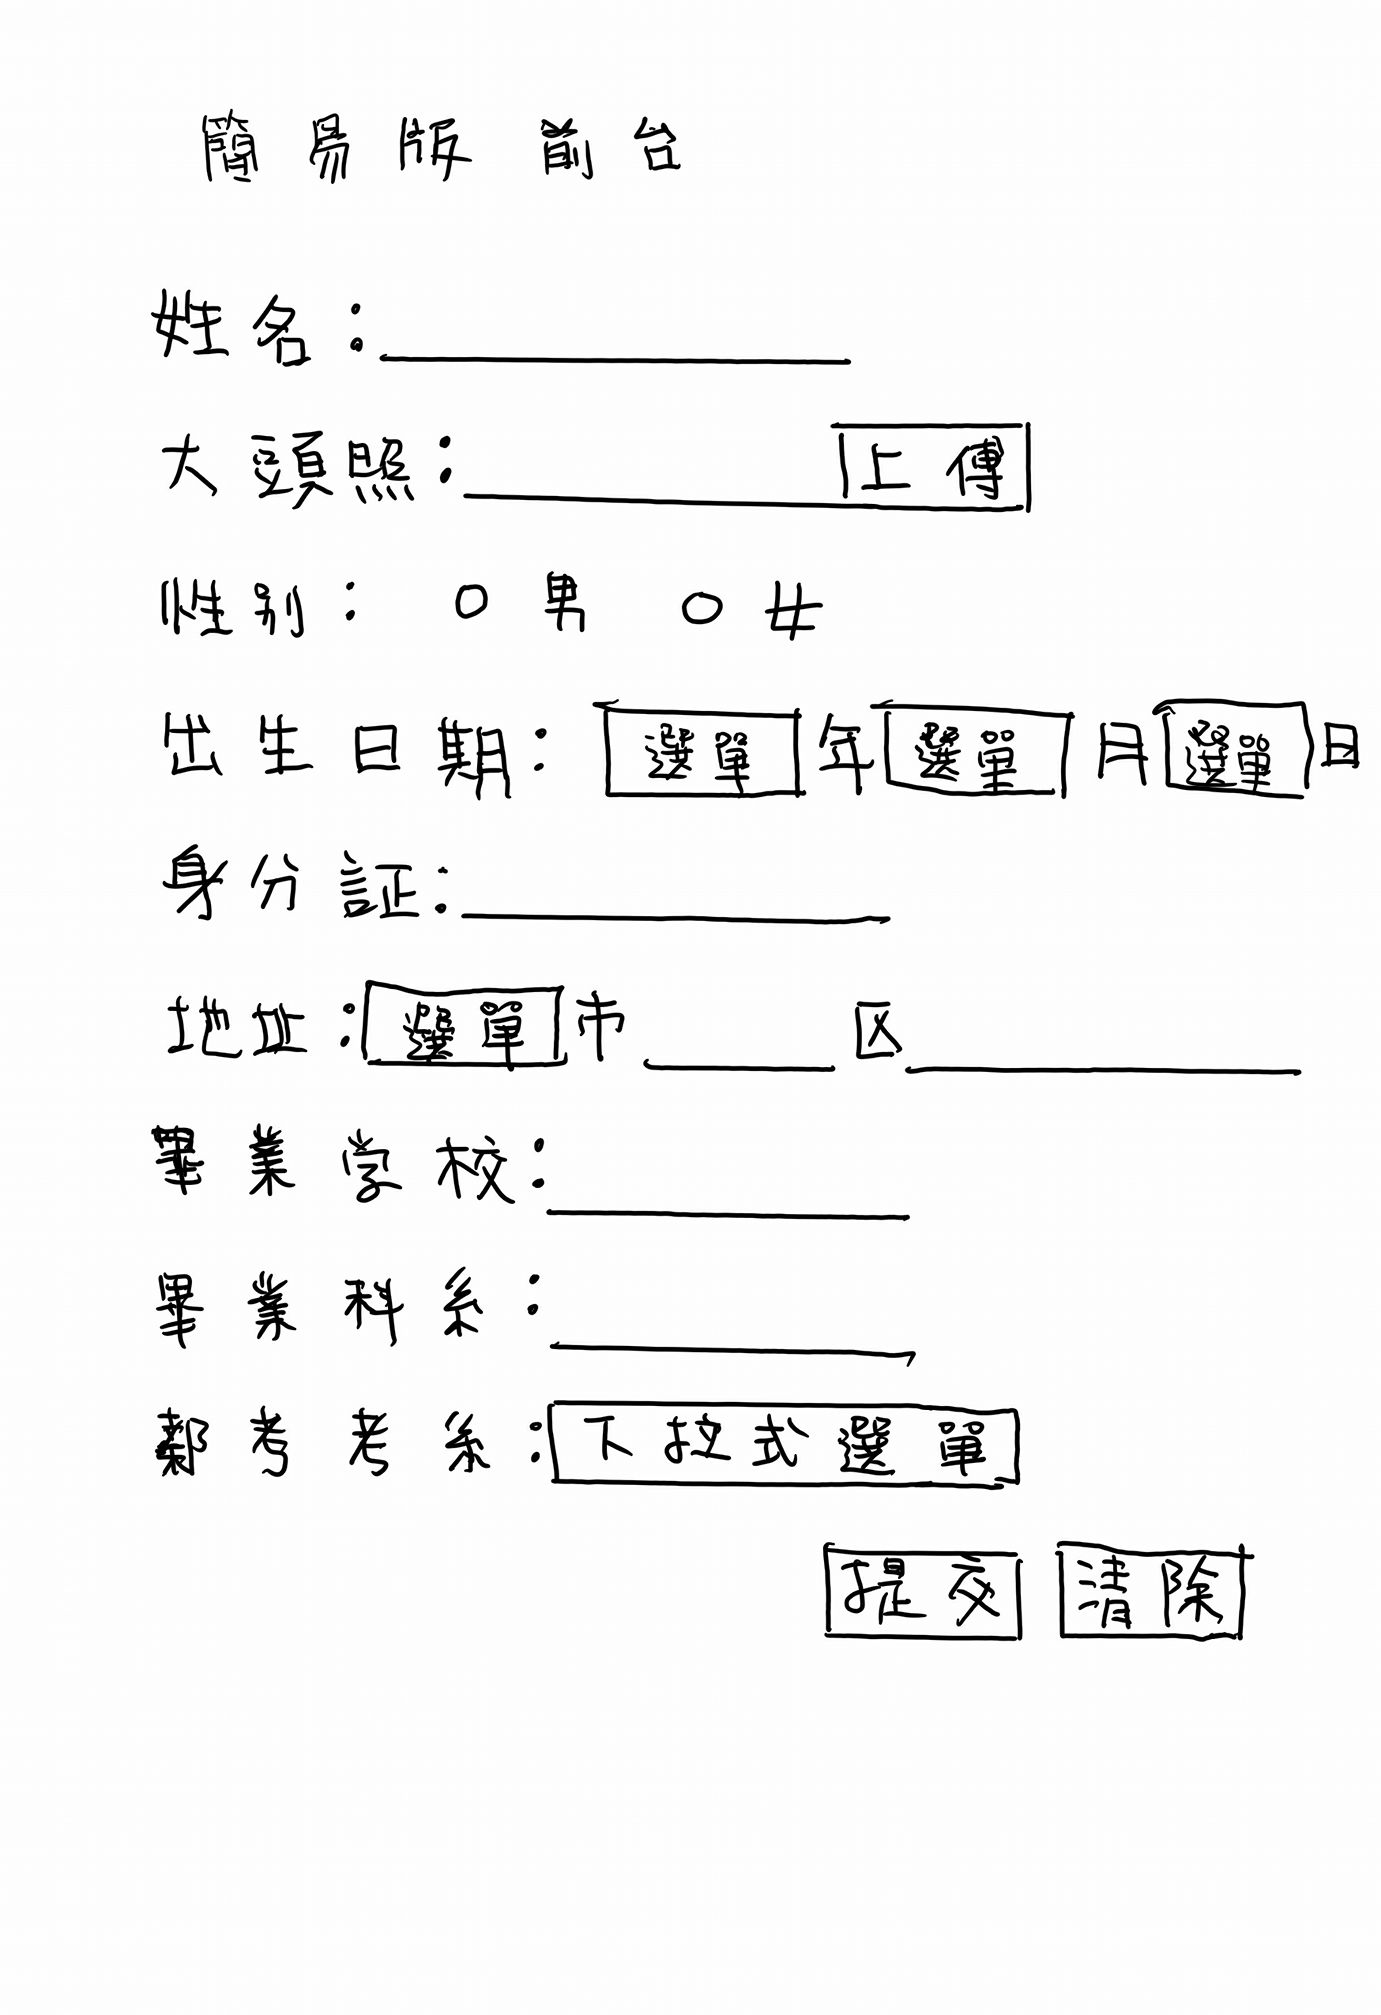 簡易版 前台
姓名：
大頭照： 上傳
性別： 男 女
出生日期： 選單 年 選單 月 選單 日
身分証：
地址： 選單 市 区
畢業学校：
畢業科系：
報考考系： 下拉式選單
提交 清除